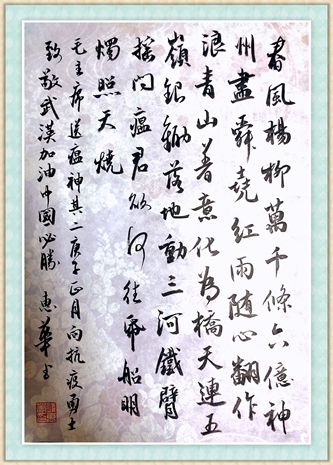 春風楊柳萬千條六億神
州盡舜堯紅雨随心翻作
浪青山着意化為橋天連五
嶺銀鋤落地動三河鐵臂
摇問瘟君欲何往紙船明
燭照天燒
毛主席送瘟神其二庚子正月向抗疫勇士
致敬武漢加油中國必勝 惠華书